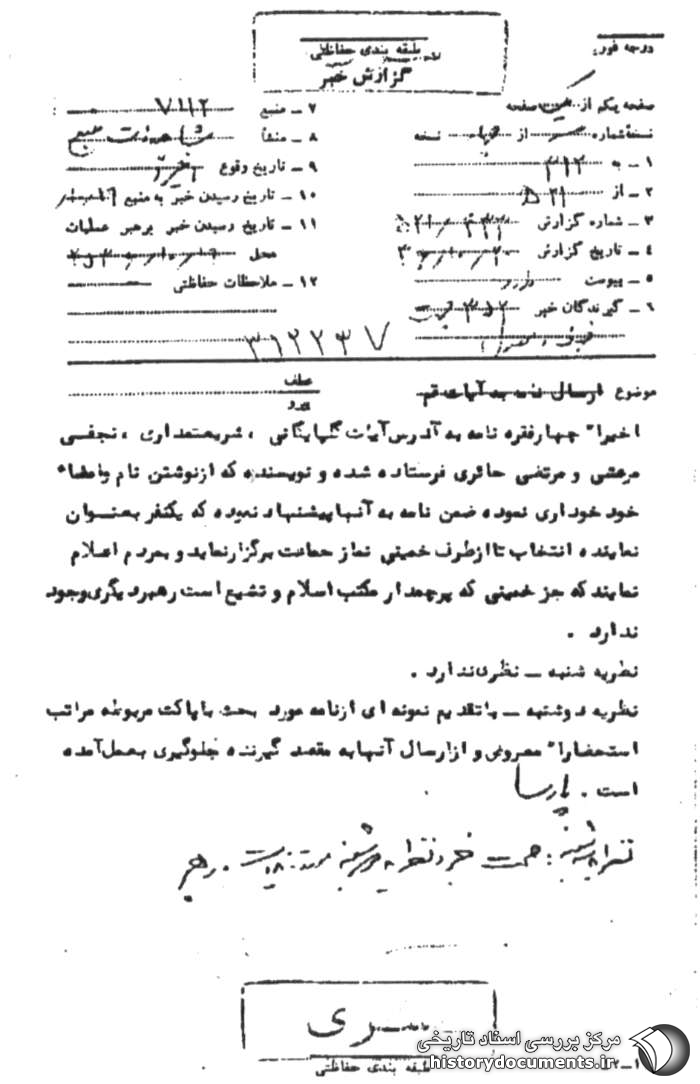 طبقه بندی حفاظتی
درجه فوری
گزارش خبر
صفحه یکم از صفحه
۷ – منبع ۷۱۱۲
نسخهٔ شماره از نسخه
۸ – منشأ
۱ – به ۳۱۲
۹ – تاریخ وقوع
۲ – از ۵۲۱
۱۰ – تاریخ رسیدن خبر به منبع
۳ – شماره گزارش
۱۱ – تاریخ رسیدن خبر برهبر عملیات
۴ – تاریخ گزارش
محل
۵ – پیوست دارد
۱۲ – ملاحظات حفاظتی
۶ – گیرندگان خبر
۳۱۲۲۳۷
موضوع ارسال نامه به آیات قم
عطف
پیرو
اخیرا" چهارفقره نامه به آدرس آیات گلپایگانی ، شریعتمداری ، نجفی
مرعشی و مرتضی حائری فرستاده شده و نویسنده که ازنوشتن نام وامضاء
خود خودداری نموده ضمن نامه به آنها پیشنهاد نموده که یکنفر بعنوان
نماینده انتخاب تا ازطرف خمینی نماز جماعت برگزارنماید و بمردم اعلام
نمایند که جز خمینی که پرچمدار مکتب اسلام و تشیع است رهبردیگری وجود
ندارد .
نظریه شنبه – نظری ندارد .
نظریه دوشنبه – باتقدیم نمونه ای ازنامه مورد بحث باپاکت مربوطه مراتب
استحضارا" معروض و ازارسال آنها به مقصد گیرنده جلوگیری بعمل آمده
است . پارسا
خبر و نظریه شنبه . رهبر
سری
طبقه بندی حفاظتی
مرکز بررسی اسناد تاریخی
historydocuments.ir